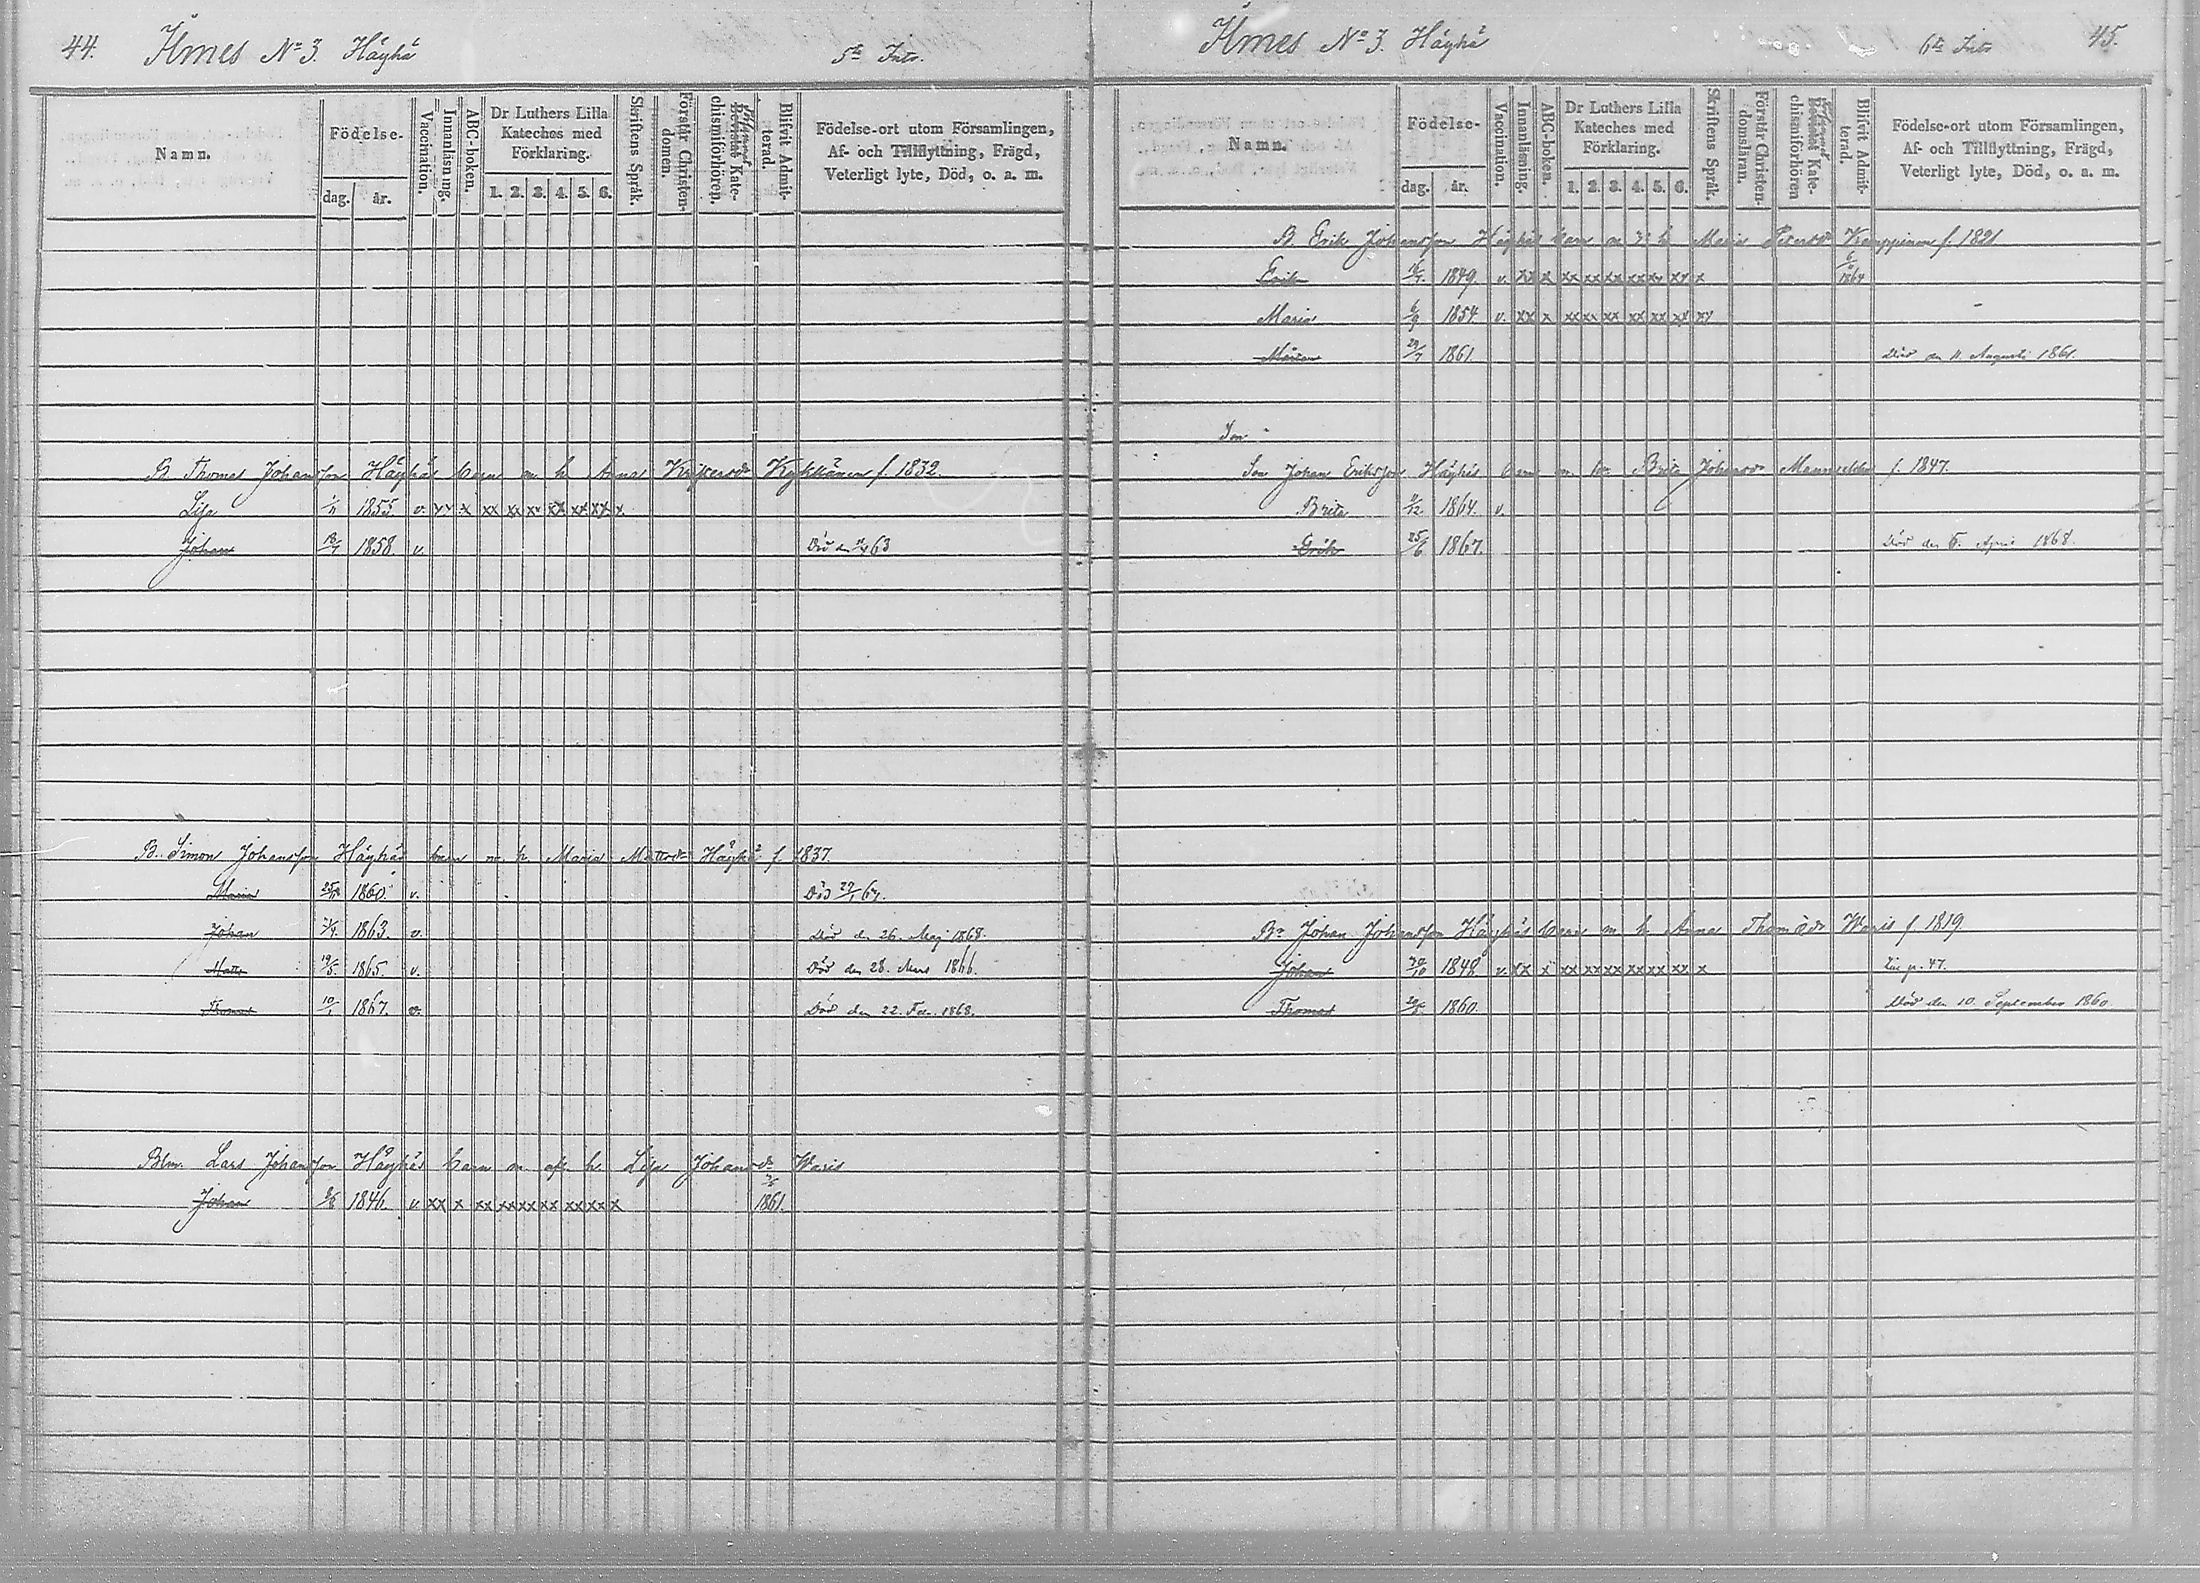 44. Ilmes No 3. Häyhä 5te Intr.
Namn.
Födelse-
dag. år.
Vaccination.
Innanläsning.
ABC-boken.
Dr Luthers Lilla
Kateches med
Förklaring.
1. 2. 3. 4. 5. 6.
Skriftens Språk.
Förstår Christen-
domen.
Kate-
chismiförhören.
Blifvit Admit-
terad.
Födelse-ort utom Församlingen,
Af- och Tillflyttning, Frägd,
Veterligt lyte, Död, o. a. m.
B. Thomas Johansson Häyhäs barn m. h. Anna f. 1832.
Lisa 1/11 1855. v. xx x xx xx xx xx xx xx x
Johan 18/7 1858. v. Död den 63
B. Simon Johansson Häyhäs barn m. h. Maria Mattsdr Häyhä f. 1837.
Maria 1860. v. Död 29/1 67.
Johan 1863. v. Död d. 26. Maj 1868.
Matts 19/5 1865. v. Död den 28. Mars 1866.
Thomas 10/1 1867. v. Död den 22. Feb. 1868.
Blm. Lars Johansson Häyhäs barn m. afl. h. Lisa Johansdr Waris
Johan 1846. v xx x xx xx xx xx xx xx x 1861.
Ilmes No 3. Häyhä 6te Intr 45.
Namn.
Födelse-
dag. år.
Vaccination.
Innanläsning.
ABC-boken.
Dr Luthers Lilla
Kateches med
Förklaring.
1. 2. 3. 4. 5. 6.
Skriftens Språk.
Förstår Christen-
domsläran.
Kate-
chismiförhören
Blifvit Admit-
terad.
Födelse-ort utom Församlingen,
Af- och Tillflyttning, Frägd,
Veterligt lyte, Död, o. a. m.
B. Erik Johansson Häyhäs barn m. h. Maria Petersdr Kamppinen f. 1821
Erik 1849. v. xx x xx xx xx xx xx xx x 1864
Maria 6/9 1854. v. xx x xx xx xx xx xx xx xx
29/7 1861. Död den 11 Augusti 1861.
Son
Son Johan Eriksson Häyhäs barn m. h. Brita Johansdr f. 1847.
Brita 1864. v.
Erik 25/6 1867. Död den 6. April 1868.
B. Johan Johansson Häyhäs barn m. h. Anna Thomædr Waris f. 1819.
Johan 1848 v. xx x xx xx xx xx xx xx x p. 47.
Thomas 1860. Död den 10. September 1860.